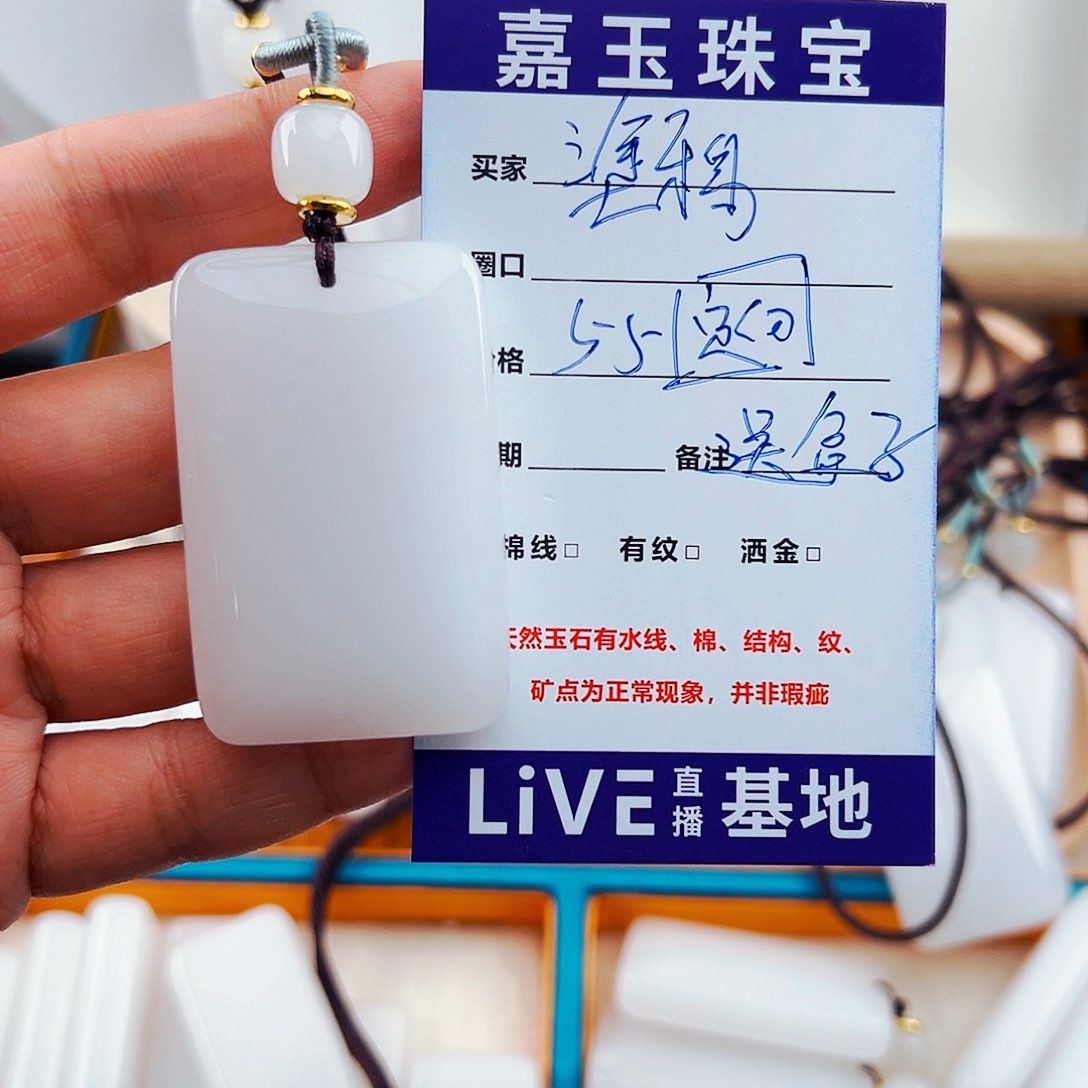 嘉玉珠宝
买家
圈口
格 55
期 备注 送盒子
棉线□ 有纹□ 洒金□
天然玉石有水线、棉、结构、纹、
矿点为正常现象，并非瑕疵
LiVE 直播 基地